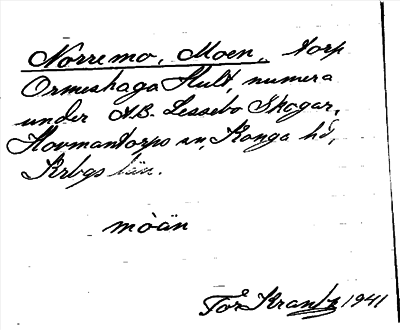 Norremo, Moen, torp
Ormeshaga Hult, numera
under A.B. Lessebo Skogar,
Hovmantorps sn, Konga hd,
Krbgs län.
mòän
Tor Krantz 1941